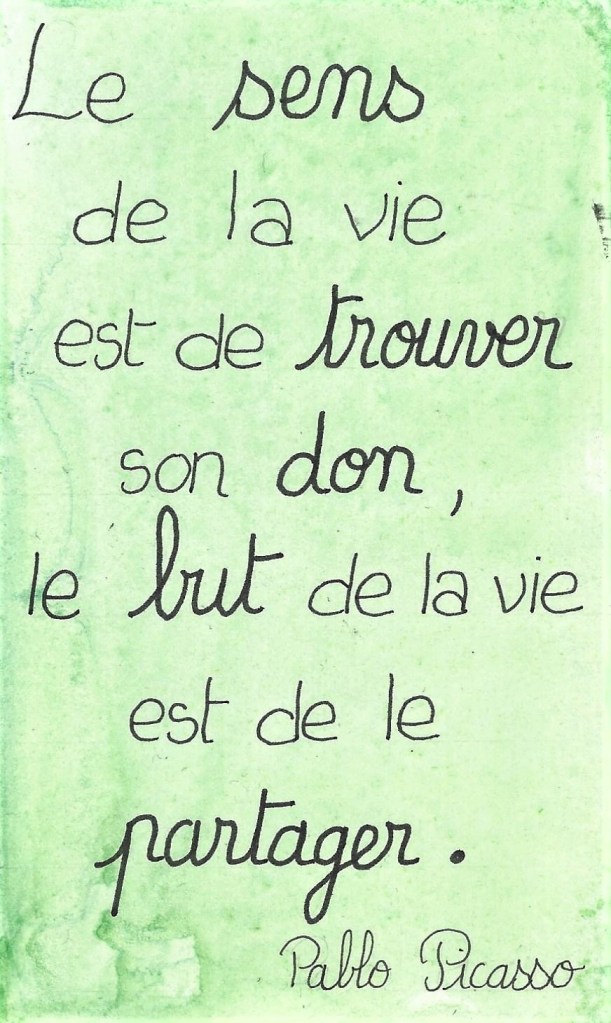 Le sens
de la vie
est de trouver
son don,
le but de la vie
est de le
partager.
Pablo Picasso